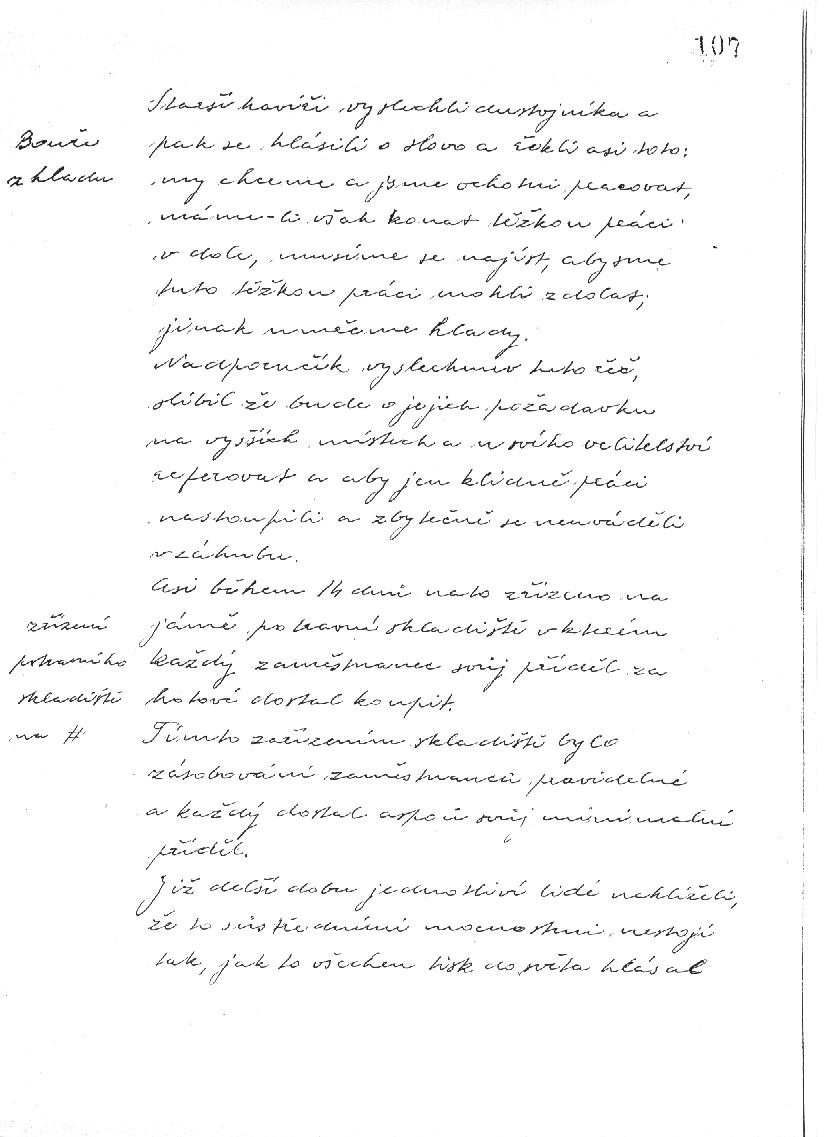 107
Starší havíři vyslechli dustojníka a
Bouře
pak se hlásili o slovo a řekli asi toto:
z hladu
my chceme a jsme ochotni pracovat,
máme-li však konat těžkou práci
v dole, musíme se najíst, abysme
tuto těžkou práci mohli zdolat,
jinak umřeme hlady.
Nadporučík vyslechnuv tuto řeč,
slíbil že bude o jejich požadavku
na vyšších místech a u svího velitelství
referovat a aby jen klidně práci
nastoupili a zbytečně se neuváděli
v záhubu.
Asi během 14 dní nato zřízeno na
zřízení
jámě potravní skladiště v kterém
potravního
každý zaměstnanec svůj příděl za
skladiště
hotové dostal koupit.
na #
Tímto zařízením skladiště bylo
zásobování zaměstnanců pravidelné
a každý dostal aspoň svůj minimalní
příděl.
Již delší dobu jednotliví lidé neklíčeli,
že to s ústředními mocnostmi nestojí
tak, jak to všechen tisk do světa hlásal